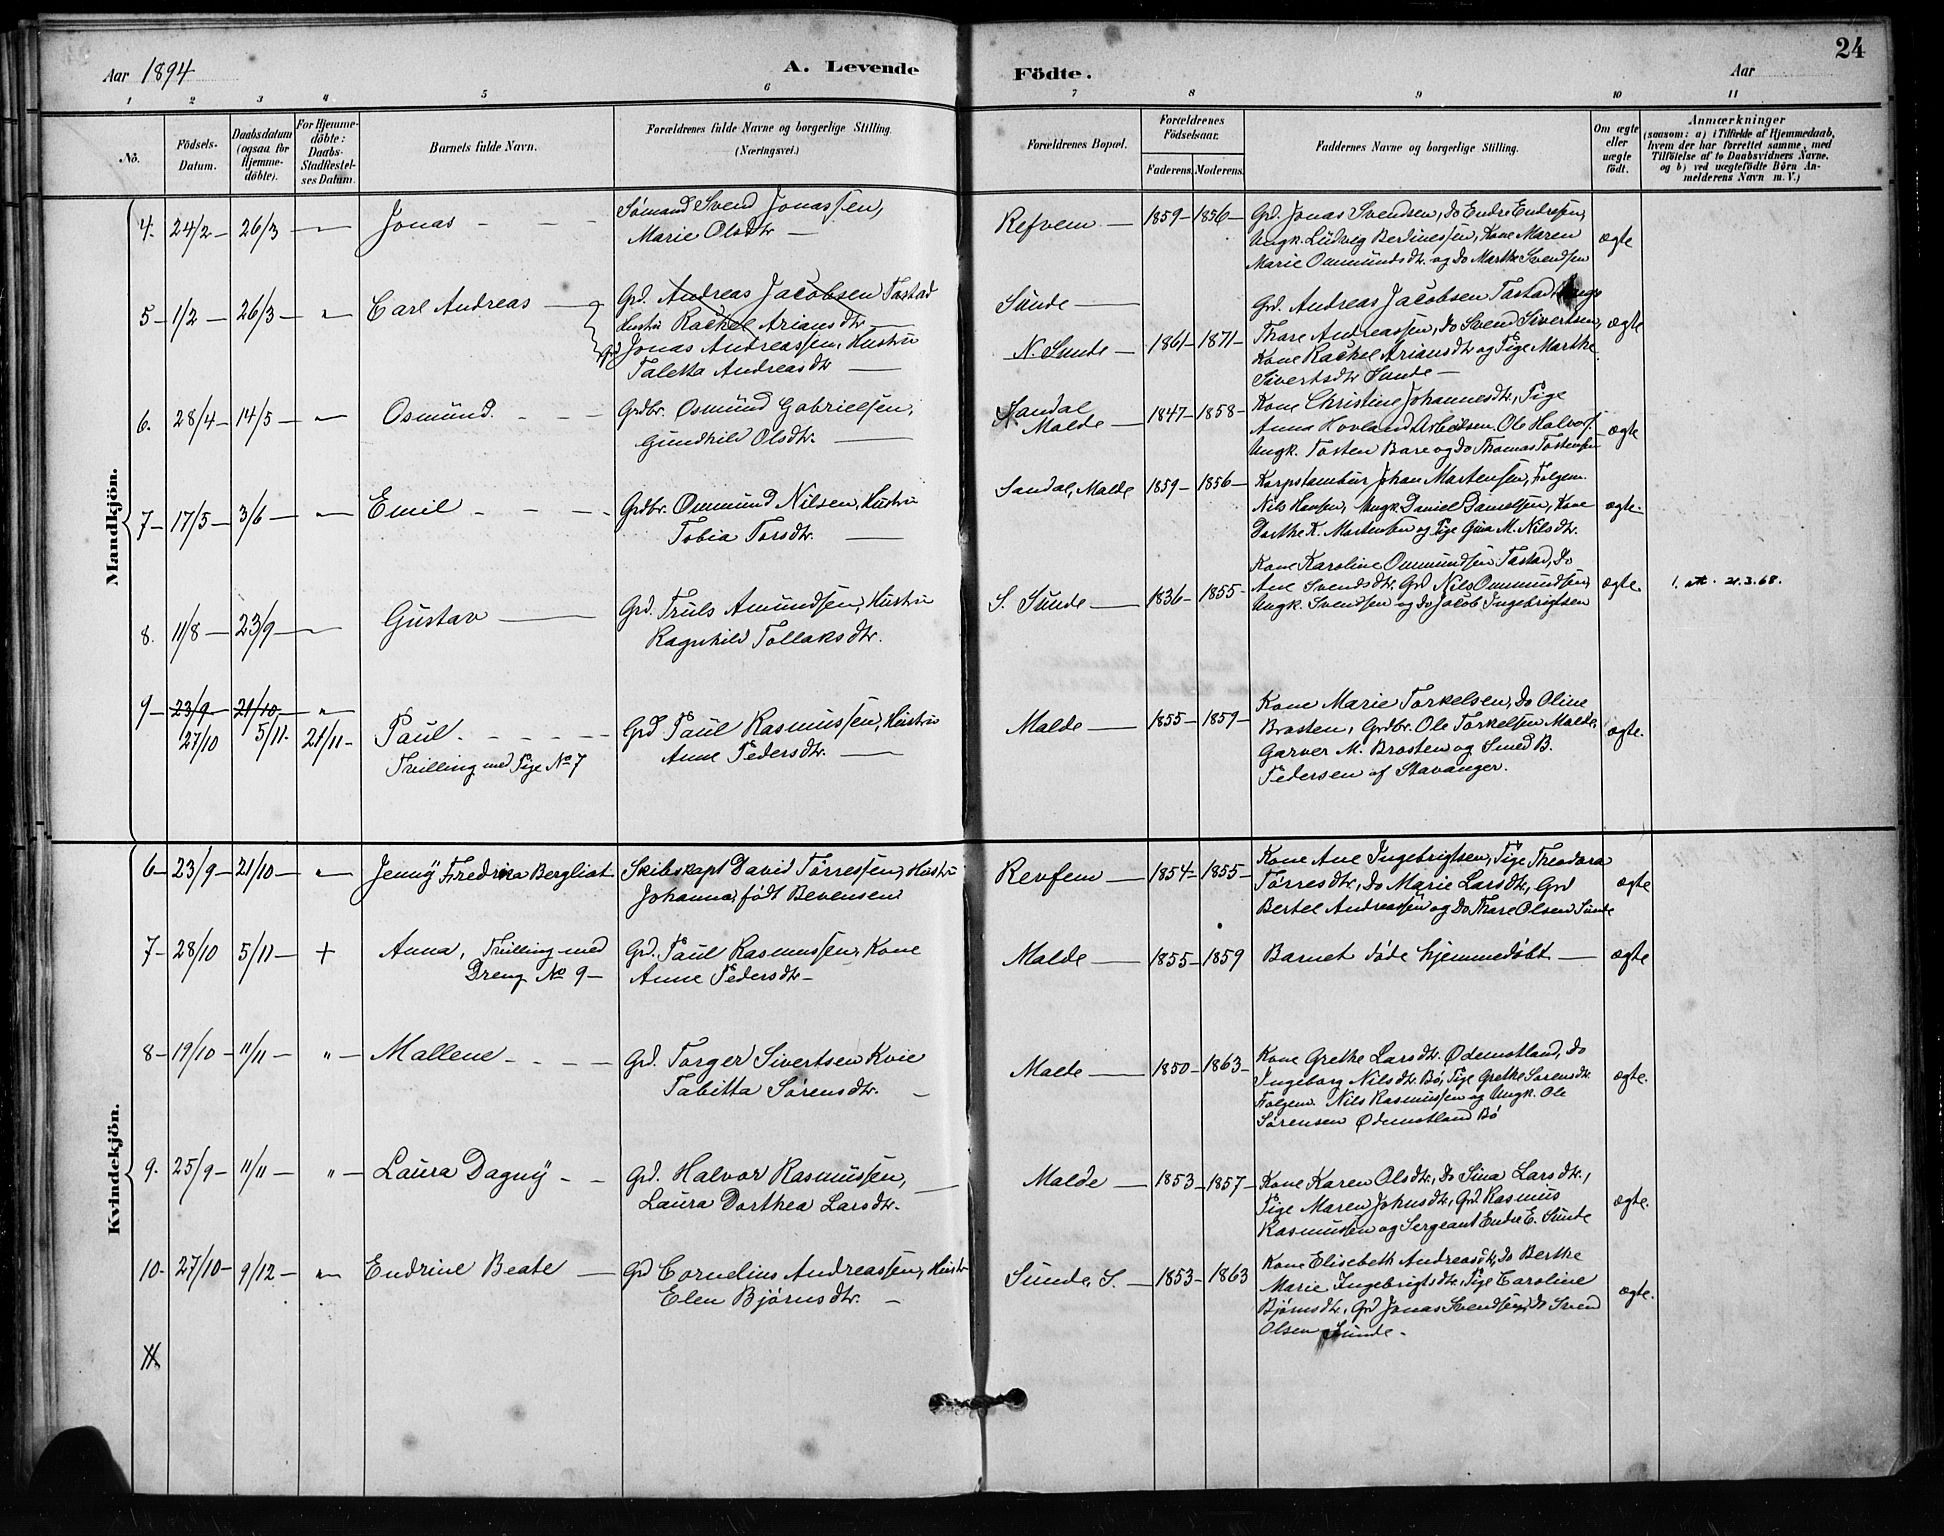 Aar 1894
A. Levende
Födte.
Aar
24
1 2 3 4 5 6 7 8 9 10 11
No.
Födsels-
Datum.
Daabsdatum
(ogsaa for
Hjemme-
döbte).
For Hjemme-
döbte:
Daabs-
Stadfæstel-
ses Datum.
Barnets fulde Navn.
Forældrenes fulde Navne og borgerlige Stilling.
(Næringsvei.)
Forældrenes Bopæl.
Forældrenes
Födselsaar.
Faderens. Moderens.
Faddernes Navne og borgerlige Stilling.
Om ægte
eller
uægte
födt.
Anmærkninger
(saasom: a) i Tilfælde af Hjemmedaab,
hvem der har forrettet samme, med
Tilföielse af to Daabsvidners Navne,
og b) ved uægtefödte Börn An-
melderens Navn m. V.)
Mandkjön.
4. 24/2 - 26/3 — Jonas - - -
Sømand Svend Jonassen,
Marie Olsdtr —
Refvem — 1859 - 1856 -
Grd. Jonas Svendsen, do Endre Endresen,
Ungk. Ludvig Bertinessen, Kone Maren
Marie Ommundsdtr. og do Marthe Svendsen
ægte
5 - 1/2 - 26/3 - " Carl Andreas —
Grd. Andreas Jacobsen Tastad
Hustru Rachel Ariansdtr —
Grd Jonas Andreassen, Hustru
Taletta Andreasdtr —
Sunde —
N. Sunde - 1861 - 1871 -
Grd. Andreas Jacobsen Tastad
Thore Andreassen, do Svend Sivertsen,
Kone Rachel Ariansdtr og Pige Marthe
Sivertsdtr Sunde —
ægte
6. 28/4 - 14/5 - — Osmund. - - -
Grdbr. Osmund Gabrielsen,
Gundhild Olsdtr. —
Sandal
Malde — 1847 - 1858 -
Kone Christine Johannesdtr, Pige
Anna Hovland Arbeidsm. Ole Halvors.
Ungk. Tosten Bare og do Thomas Tostensen
ægte
7 - 17/5 - 3/6 — — Emil - - -
Grdbr. Ommund Nilsen, Hustru
Tobia Torsdtr. —
Sandal, Malde 1859 - 1856 -
Korpstambur Johan Martensen, Folgem.
Nils Hansen, Ungk. Daniel Danielsen, Kone
Dorthe K. Martensen og Pige Gina M. Nilsdtr.
ægte.
8. 11/8 - 23/9 — Gustav —
Grd. Truls Amundsen, Hustru
Ragnhild Tollaksdtr.
S. Sunde — 1836 - 1855 -
Kone Karoline Ommundsen Tastad, do
Ane Svendsdtr. Grd Nils Ommundsen,
Ungk. Svendsen og do Jacob Ingebrigtsen
ægte.
1. att. 21.3.68.
9 - 23/9 - 21/10 - "
27/10 5/11. 21/11 - Paul. - - - -
Tvilling med Pige No 7
Grd Paul Rasmussen, Hustru
Anne Pedersdtr. —
Malde — 1855 - 1859 -
Kone Marie Torkelsen, do Oline
Brosten, Grdbr. Ole Torkelsen Malde,
Garver M. Brosten og Smed B.
Pedersen af Stavanger.
ægte.
Kvindekjön.
6 - 23/9 - 21/10 - " Jenny Fredrica Bergliot
Skibskapt David Tørressen, Hustru
Johanna, født Bevensen
Revfem — 1854 - 1855 -
Kone Ane Ingebrigtsen, Pige Theodora
Tørresdtr, do Marie Larsdtr, Grd
Bertel Andreassen og do Thore Olsen Sunde
ægte
7 - 28/10 5/11 - + Anna, Tvilling med
Dreng No 9 -
Grd. Paul Rasmussen, Kone
Anne Pedersdtr -
Malde — 1855 - 1859
Barnet døde hjemmedøbt —
ægte
8 - 19/10 - 11/11 - " - Mallene - - -
Grd. Torger Sivertsen Kvie
Tabitta Sørensdtr. -
Malde — 1850 - 1863 -
Kone Grethe Larsdtr. Ødemotland, do
Ingeborg Nilsdtr. Bø, Pige Grethe Sørensdtr
Folgem. Nils Rasmussen og Ungk. Ole
Sørensen Ødemotland Bø
ægte.
9. 25/9 - 11/11 - " - Laura Dagny - -
Grd. Halvor Rasmussen,
Laura Dorthea Larsdtr. -
Malde — 1853 - 1857 -
Kone Karen Olsdtr, do Sina Larsdtr,
Pige Maren Johnsdtr, Grd Rasmus
Rasmussen og Sergeant Endre E. Sunde
ægte.
10 - 27/10 - 9/12 - " Endrine Beate —
Grd Cornelius Andreassen, Hustr
Elen Bjørnsdtr. -
Sunde, S. - 1853 - 1863
Kone Elisebeth Andreasdtr, do Berthe
Marie Ingebrigtsdtr, Pige Caroline
Bjørnsdtr, Grd Jonas Svendsen, do Svend
Olsen Sunde -
ægte.
11